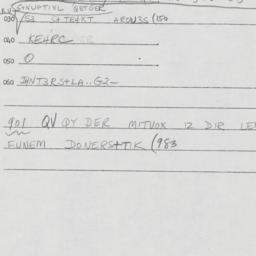 S+NUPTIVL QETGER
030 53 S+TE4KT ARON3S (150
040 KEHRC
050 O
060 JHNT3RS+LA..G2-
901 QV QY DER MITVOX IZ DIR
FUNEM DONERS+TIK (983